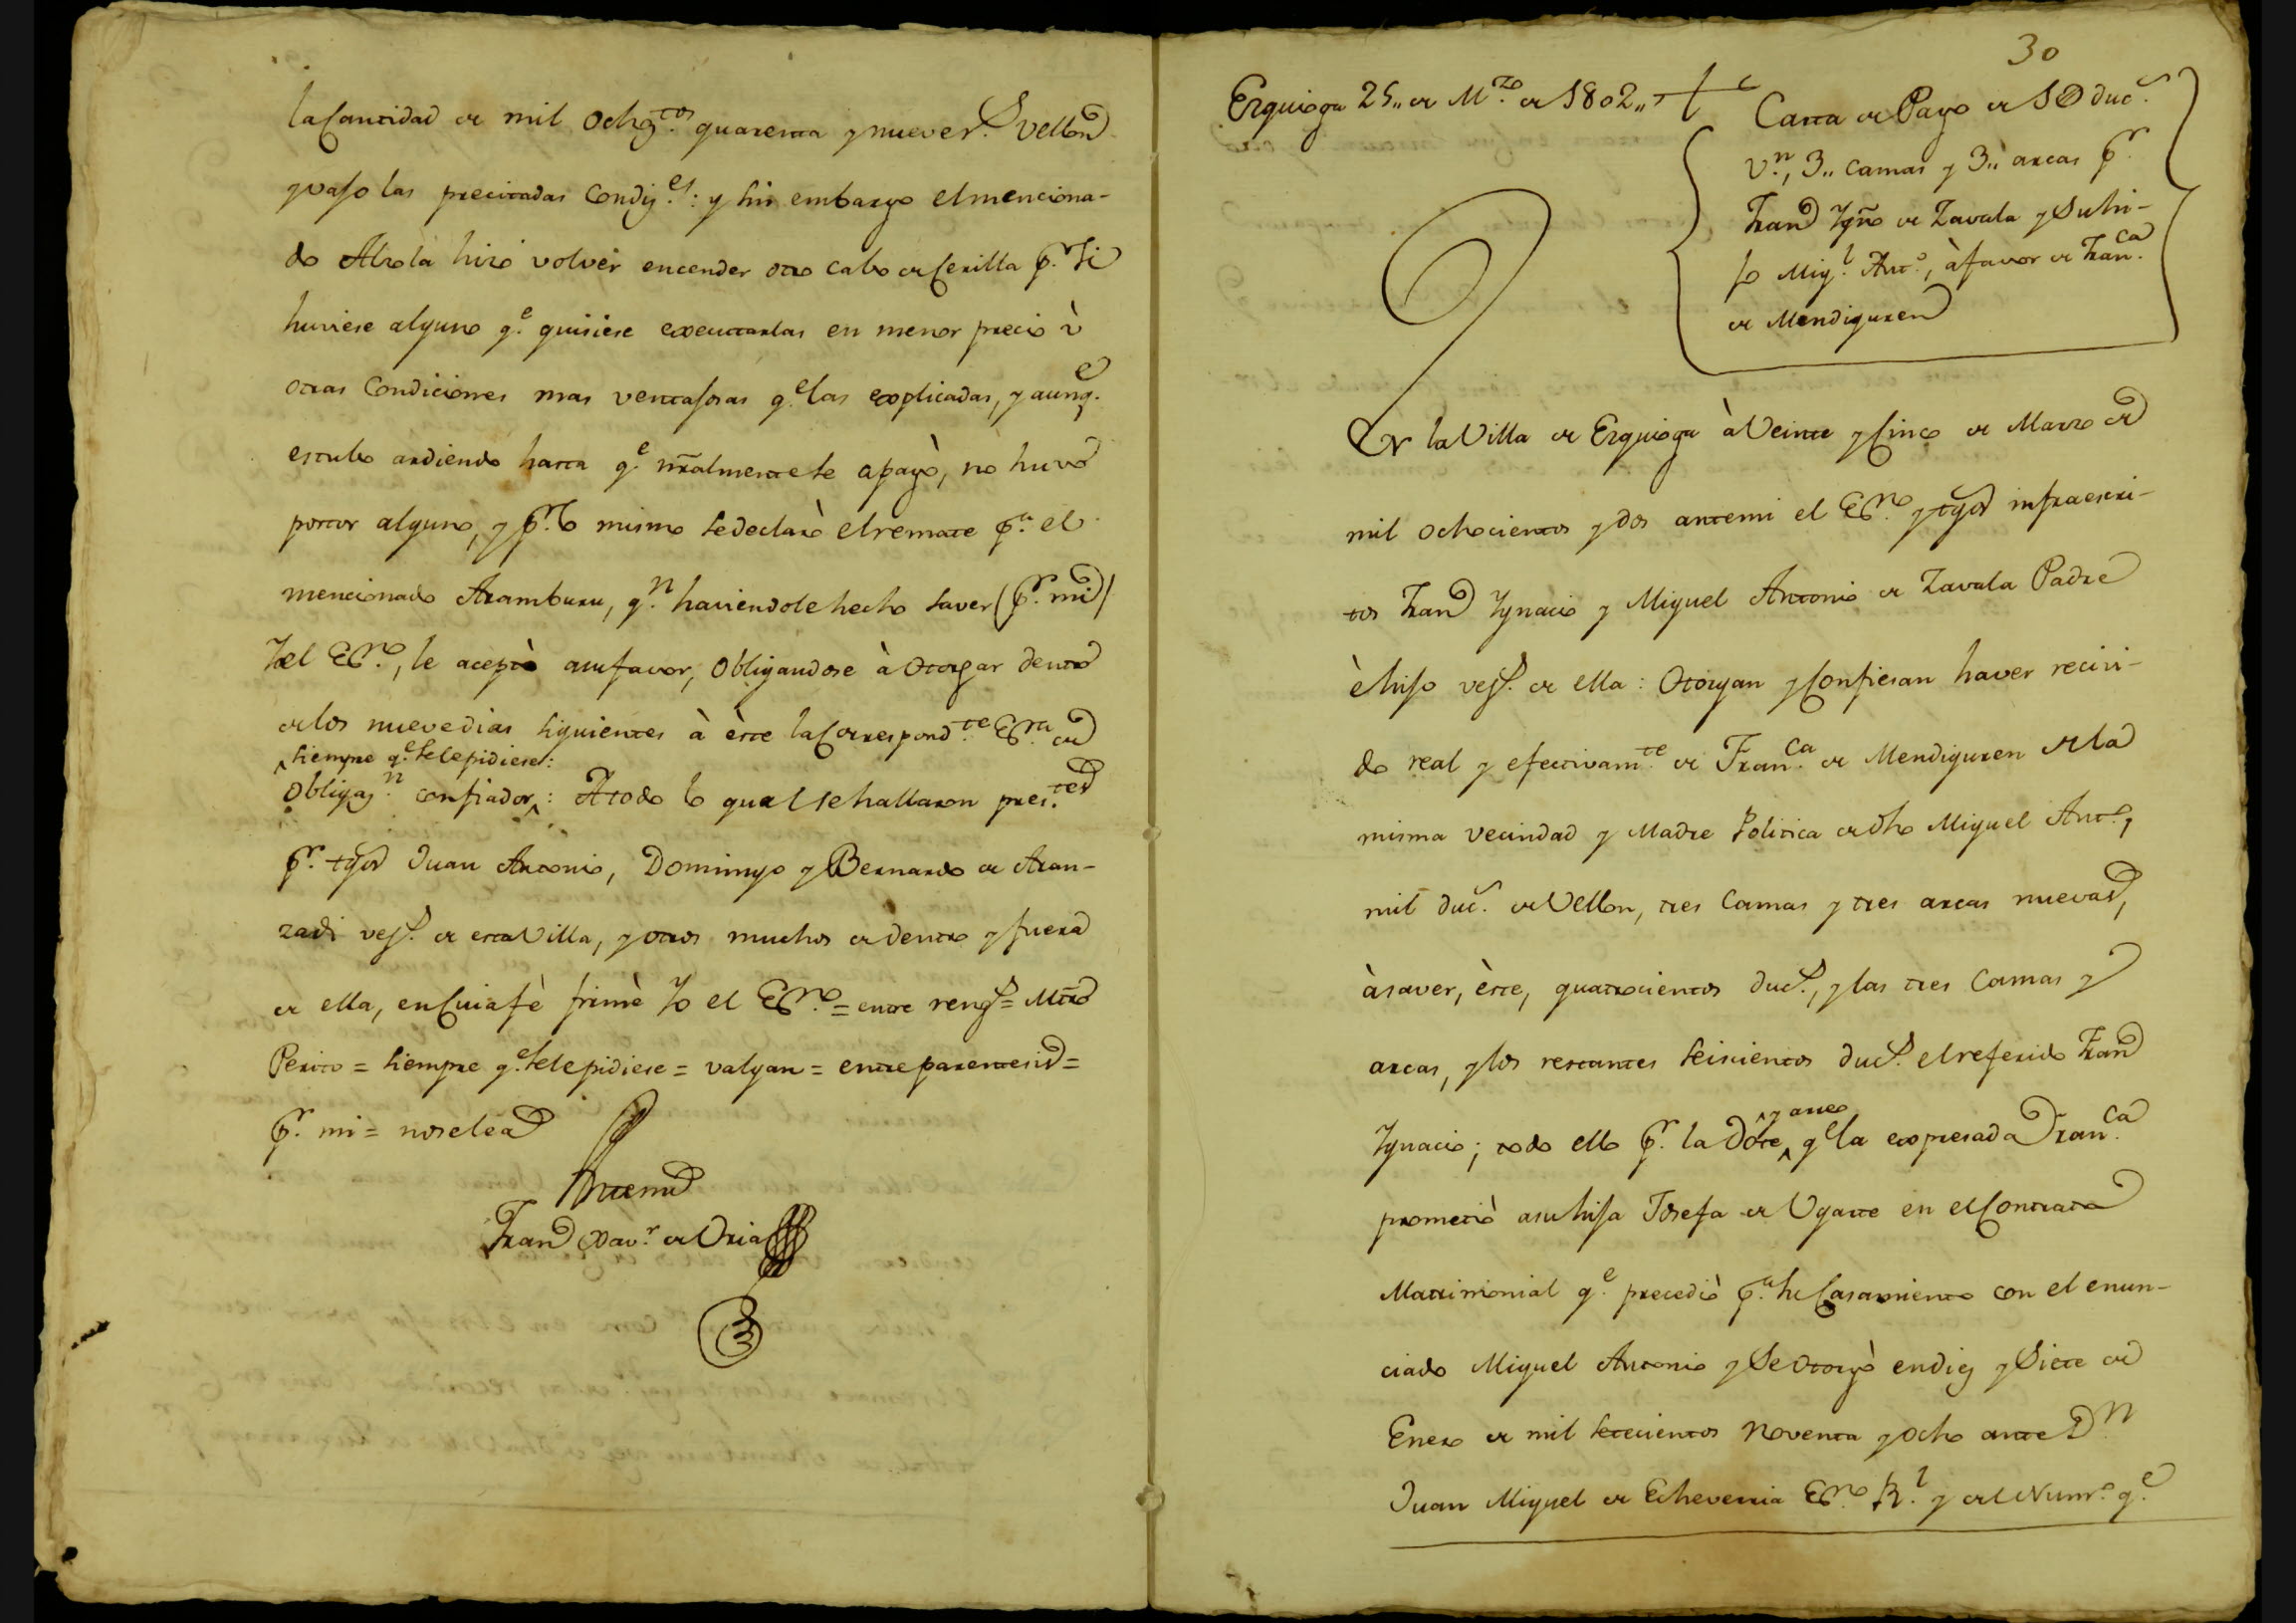 la Cantidad de mil ochoz.tos quarenta y nueve r.s vellon
y vajo las precitadas Condiz.es: y sin embargo el menciona-
do Alzola hizo volver encender otro cabo de Cerilla p.r si
huviese alguno q.e quisiese executarlas en menor precio ù
otras Condiciones mas ventajosas q.e las explicadas, y aunq.e
estubo ardiendo hasta q.e nrãlmente se apagò, no huvo
postor alguno, y p.r lo mismo se declarò el remate p.a el
mencionado Aramburu, q.n haviendole hecho saver (p.r mi)
Yo el Es.no, le aceptò a su favor, obligandose à otorgar dentro
de los nueve dias siguientes à èste la Correspond.te Es.ra de
siempre q.e se le pidiese:
obligaz.n con fiador: A todo lo qual se hallaron pres.tes
p.r tgos Juan Antonio, Domingo y Bernardo de Aran-
zadi vez.s de esta Villa, y otros muchos de dentro y fuera
de ella, en Cuia fè firmè Yo el Es.no = entre reng.s = Mtro
Perito = siempre q.e se le pidiese = valgan = entre parentesis =
p.r mi = no se lea
Ante mi
Fran.co Xav.r de Oria
30
Ezquioga 25,, de M.zo de 1802,,
Carta de Pago de 1D duc.s
v.n, 3,, camas y 3,, arcas p.r
Fran.co Ygn.o de Zavala y su hi-
jo Mig.l Ant.o, à favor de Fran.ca
de Mendiguren
EN la Villa de Ezquioga à Veinte y Cinco de Marzo de
mil ochocientos y dos ante mi el Es.no y tgos infraescri-
tos Fran.co Ygnacio y Miguel Antonio de Zavala Padre
è hijo vez.s de ella: Otorgan y Confiesan haver recivi-
do real y efectivam.te de Fran.ca de Mendiguren de la
misma vecindad y Madre Politica de dho Miguel Ant.o,
mil duc.s de Vellon, tres Camas y tres arcas nuevas,
à saver, èste, quatrocientos duc.s, y las tres Camas y
arcas, y los restantes seiscientos duc.s el referido Fran.co
y arreo
Ygnacio; todo ello p.r la Dote q.e la expresada Fran.ca
prometiò a su hija Josefa de Ugarte en el Contrato
Matrimonial q.e precediò p.a su Casamiento con el enun-
ciado Miguel Antonio y Se Otorgò en diez y Siete de
Enero de mil setecientos Noventa y ocho ante D.n
Juan Miguel de Echeverria Es.no R.l y del Num.o q.e